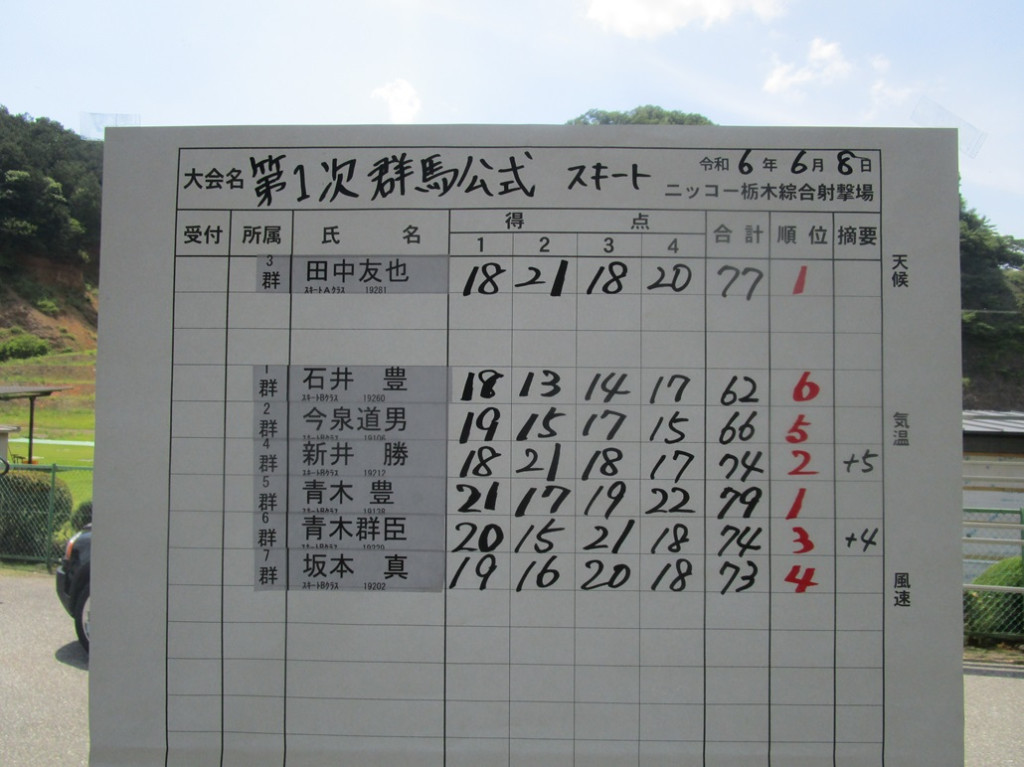 大会名 第1次 群馬公式 スキート 令和 6 年 6 月 8 日
ニッコー栃木綜合射撃場
受付 所属 氏 名 得 点 合計 順位 摘要
1 2 3 4
3群 田中友也 18 21 18 20 77 1
スキートAクラス 19281
1群 石井 豊 18 13 14 17 62 6
スキートBクラス 19260
2群 今泉道男 19 15 17 15 66 5
4群 新井 勝 18 21 18 17 74 2 +5
スキートBクラス 19212
5群 青木 豊 21 17 19 22 79 1
6群 青木群臣 20 15 21 18 74 3 +4
7群 坂本 真 19 16 20 18 73 4
スキートBクラス 19202
天候
気温
風速